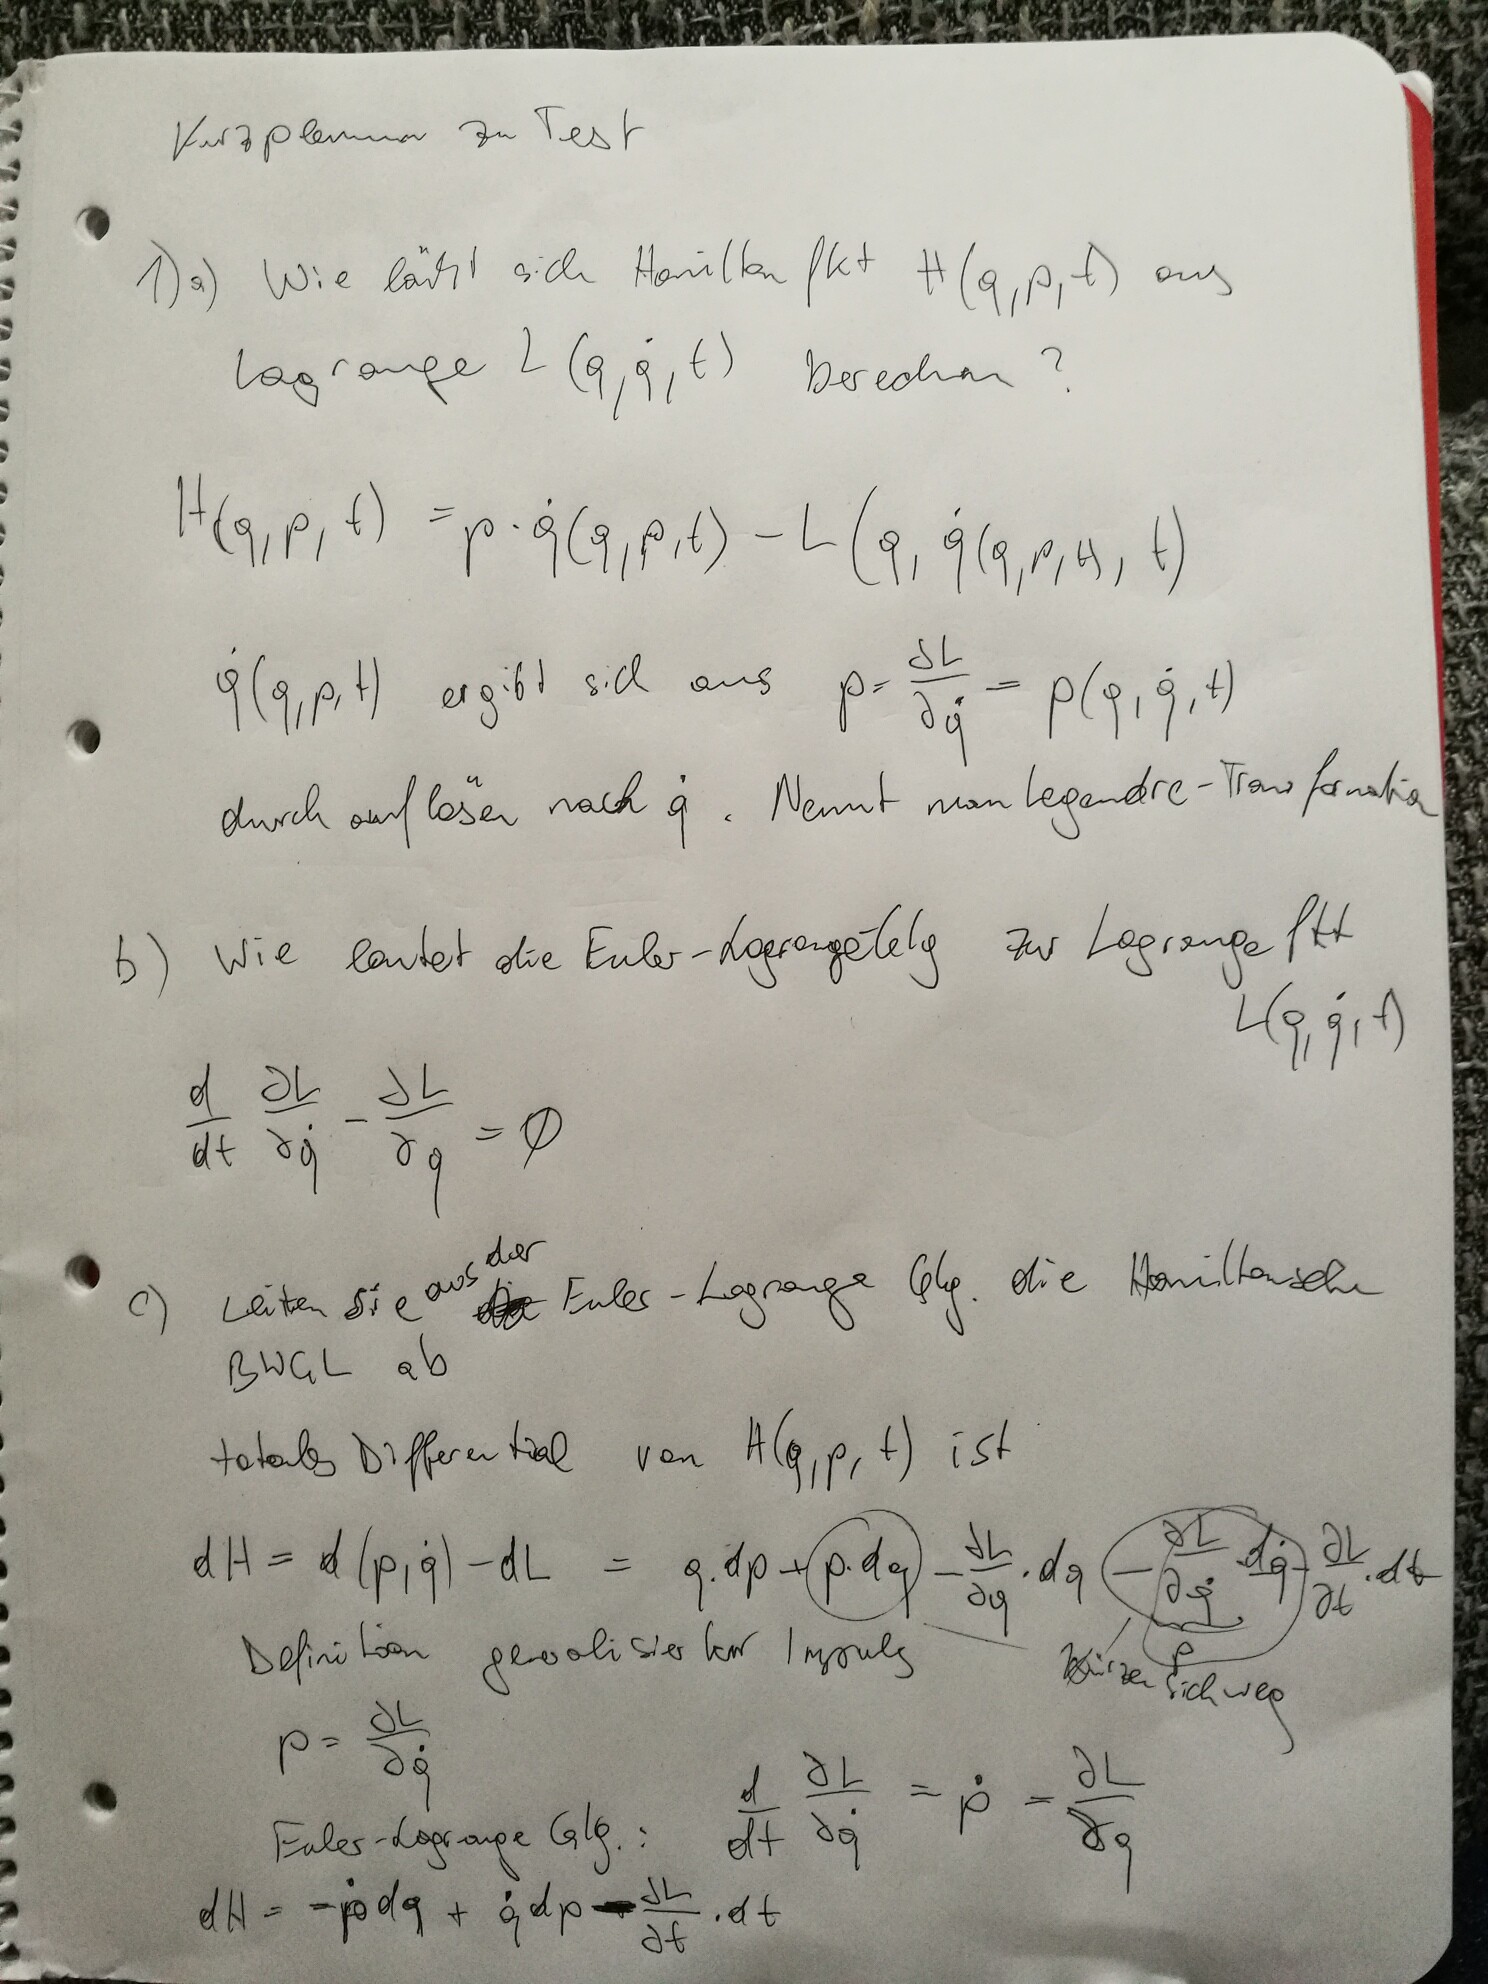 Kurzplenum zu Test
1)a) Wie läßt sich Hamilton fkt H(q,p,t) aus
Lagrange L(q,q̇,t) berechnen?
H(q,p,t) = p·q̇(q,p,t) - L(q, q̇(q,p,t), t)
q̇(q,p,t) ergibt sich aus p = ∂L/∂q̇ = p(q,q̇,t)
durch auflösen nach q̇. Nennt man Legendre-Transformation
b) Wie lautet die Euler-Lagrange Glg zur Lagrange fkt
L(q,q̇,t)
d/dt ∂L/∂q̇ - ∂L/∂q = 0
c) Leiten Sie aus der Euler-Lagrange Glg. die Hamiltonschen
BWGL ab
totales Differential von H(q,p,t) ist
dH = d(p,q̇) - dL = q.dp + p.dq - ∂L/∂q . dq - ∂L/∂q̇ dq̇ - ∂L/∂t . dt
p
Definition generalisierter Impuls
kürzen sich weg
p = ∂L/∂q̇
Euler-Lagrange Glg.: d/dt ∂L/∂q̇ = ṗ = ∂L/∂q
dH = -ṗdq + q̇dp - ∂L/∂t . dt